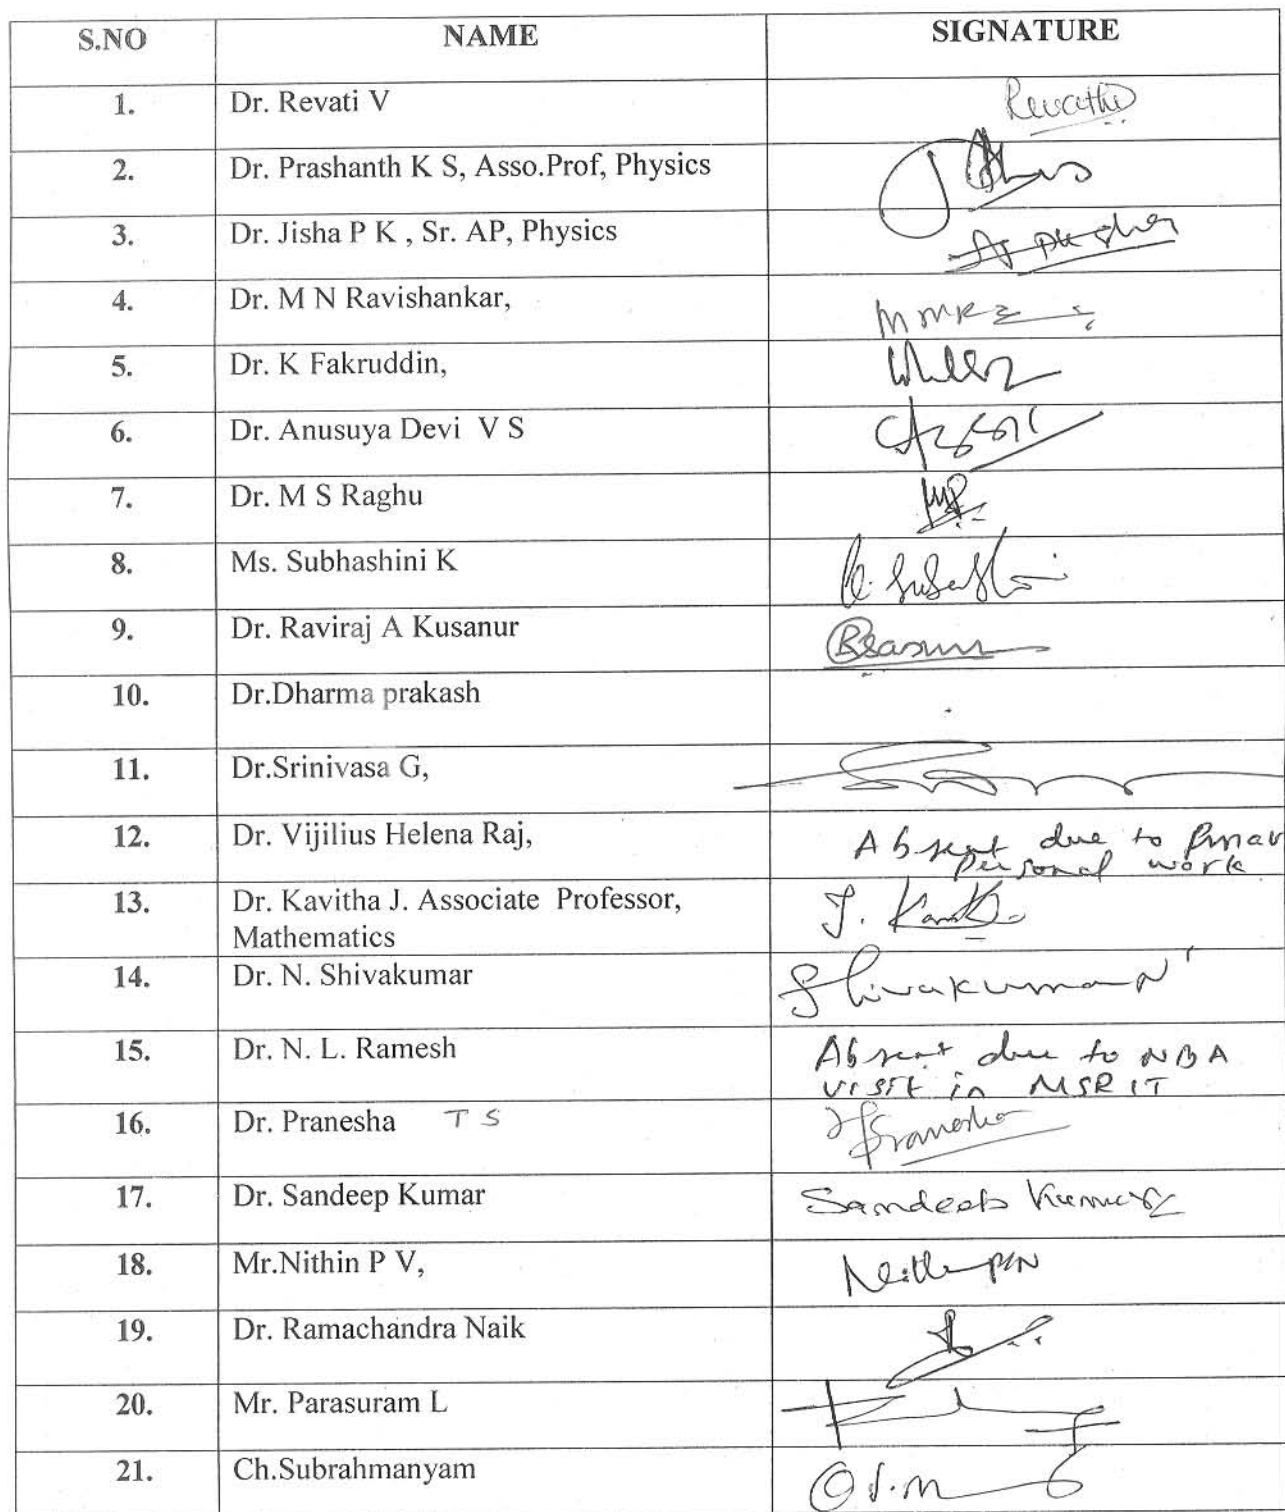 S.NO NAME SIGNATURE
1. Dr. Revati V Revathi
2. Dr. Prashanth K S, Asso.Prof, Physics
3. Dr. Jisha P K , Sr. AP, Physics
4. Dr. M N Ravishankar,
5. Dr. K Fakruddin,
6. Dr. Anusuya Devi V S
7. Dr. M S Raghu
8. Ms. Subhashini K
9. Dr. Raviraj A Kusanur
10. Dr.Dharma prakash
11. Dr.Srinivasa G,
12. Dr. Vijilius Helena Raj, Absent due to
personal work
13. Dr. Kavitha J. Associate Professor, J.
Mathematics
14. Dr. N. Shivakumar Shivakumar N
15. Dr. N. L. Ramesh Absent due to NBA
visit in MSRIT
16. Dr. Pranesha T S Pranesha
17. Dr. Sandeep Kumar Sandeep Kumar
18. Mr.Nithin P V,
19. Dr. Ramachandra Naik
20. Mr. Parasuram L
21. Ch.Subrahmanyam